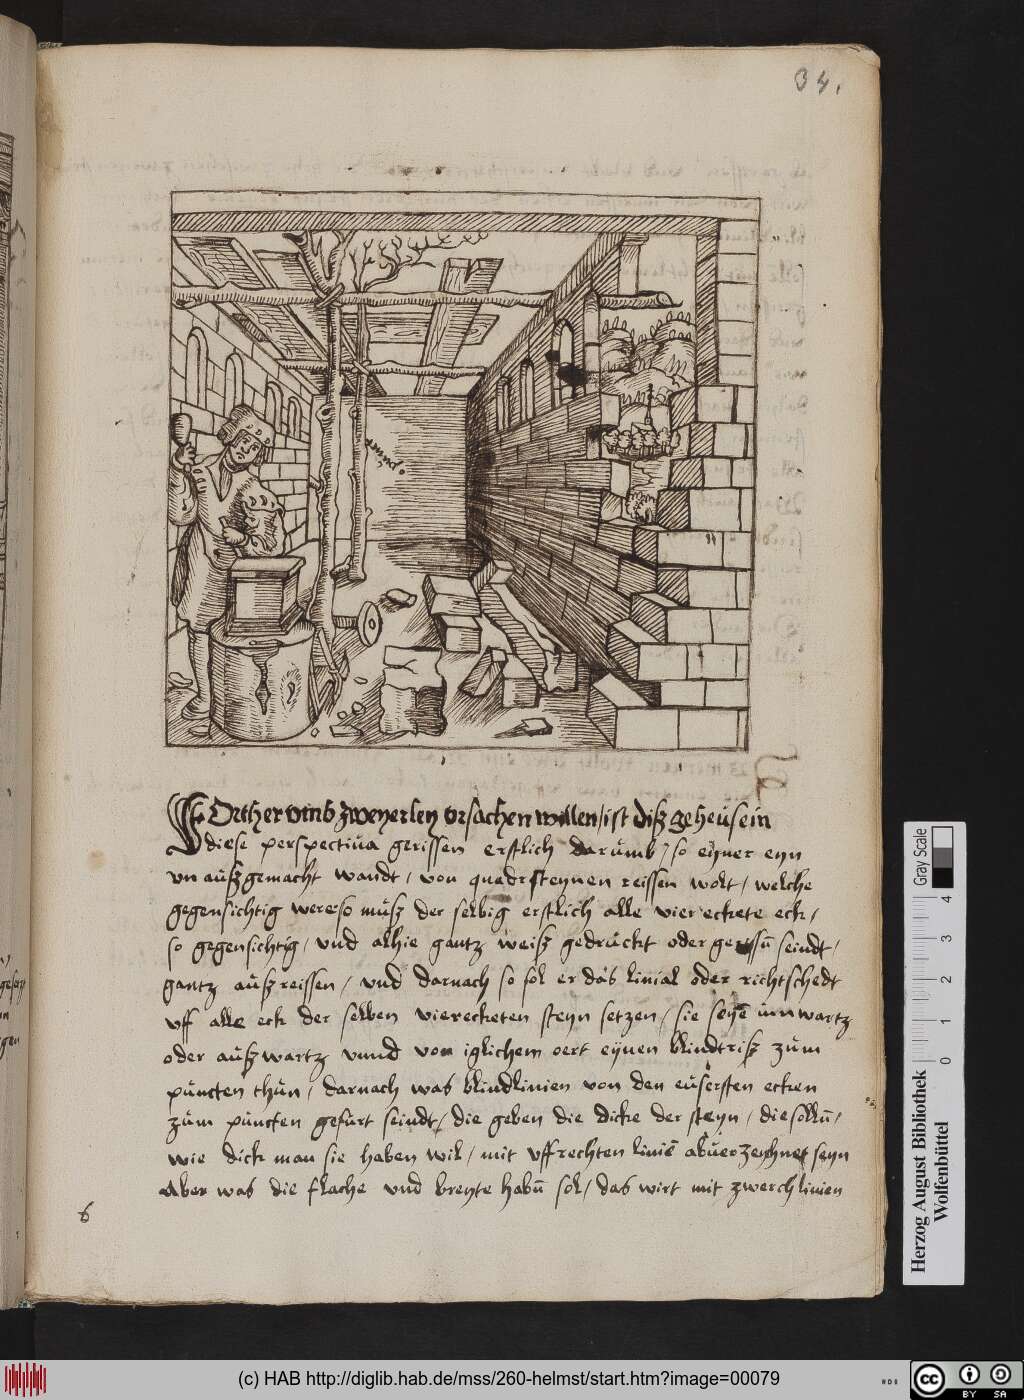 34.
punct.
Orther umb zweyerley ursachen willen / ist disz geheuse in
diese perspectiva gerissen erstlich darumb / so eyner eyn
un auszgemacht wandt / von quadrsteynen reissen wolt / welche
gegensichtig were so musz der selbig erstlich alle viereckete eck /
so gegensichtig / und alhie gantz weisz gedruckt oder gerissn̄ seindt /
gantz auszreissen / und darnach so sol er das linial oder richtschedt
uff alle eck der selben vierecketen steyn setzen / sie seyē innwartz
oder auszwartz unnd von iglichem oert eynen blindtrisz zum
puncten thun / darnach was blindlinien von den eusersten ecken
zum puncten gefurt seindt / die geben die dicke der steyn / die solln̄ /
wie dick man sie haben wil / mit uffrechten liniē abverzeychnet seyn
Aber was die flache und breyte habn̄ sol / das wirt mit zwerchlinien
6
Herzog August Bibliothek
Wolfenbüttel
Gray Scale
0 1 2 3 4
(c) HAB http://diglib.hab.de/mss/260-helmst/start.htm?image=00079
cc BY SA